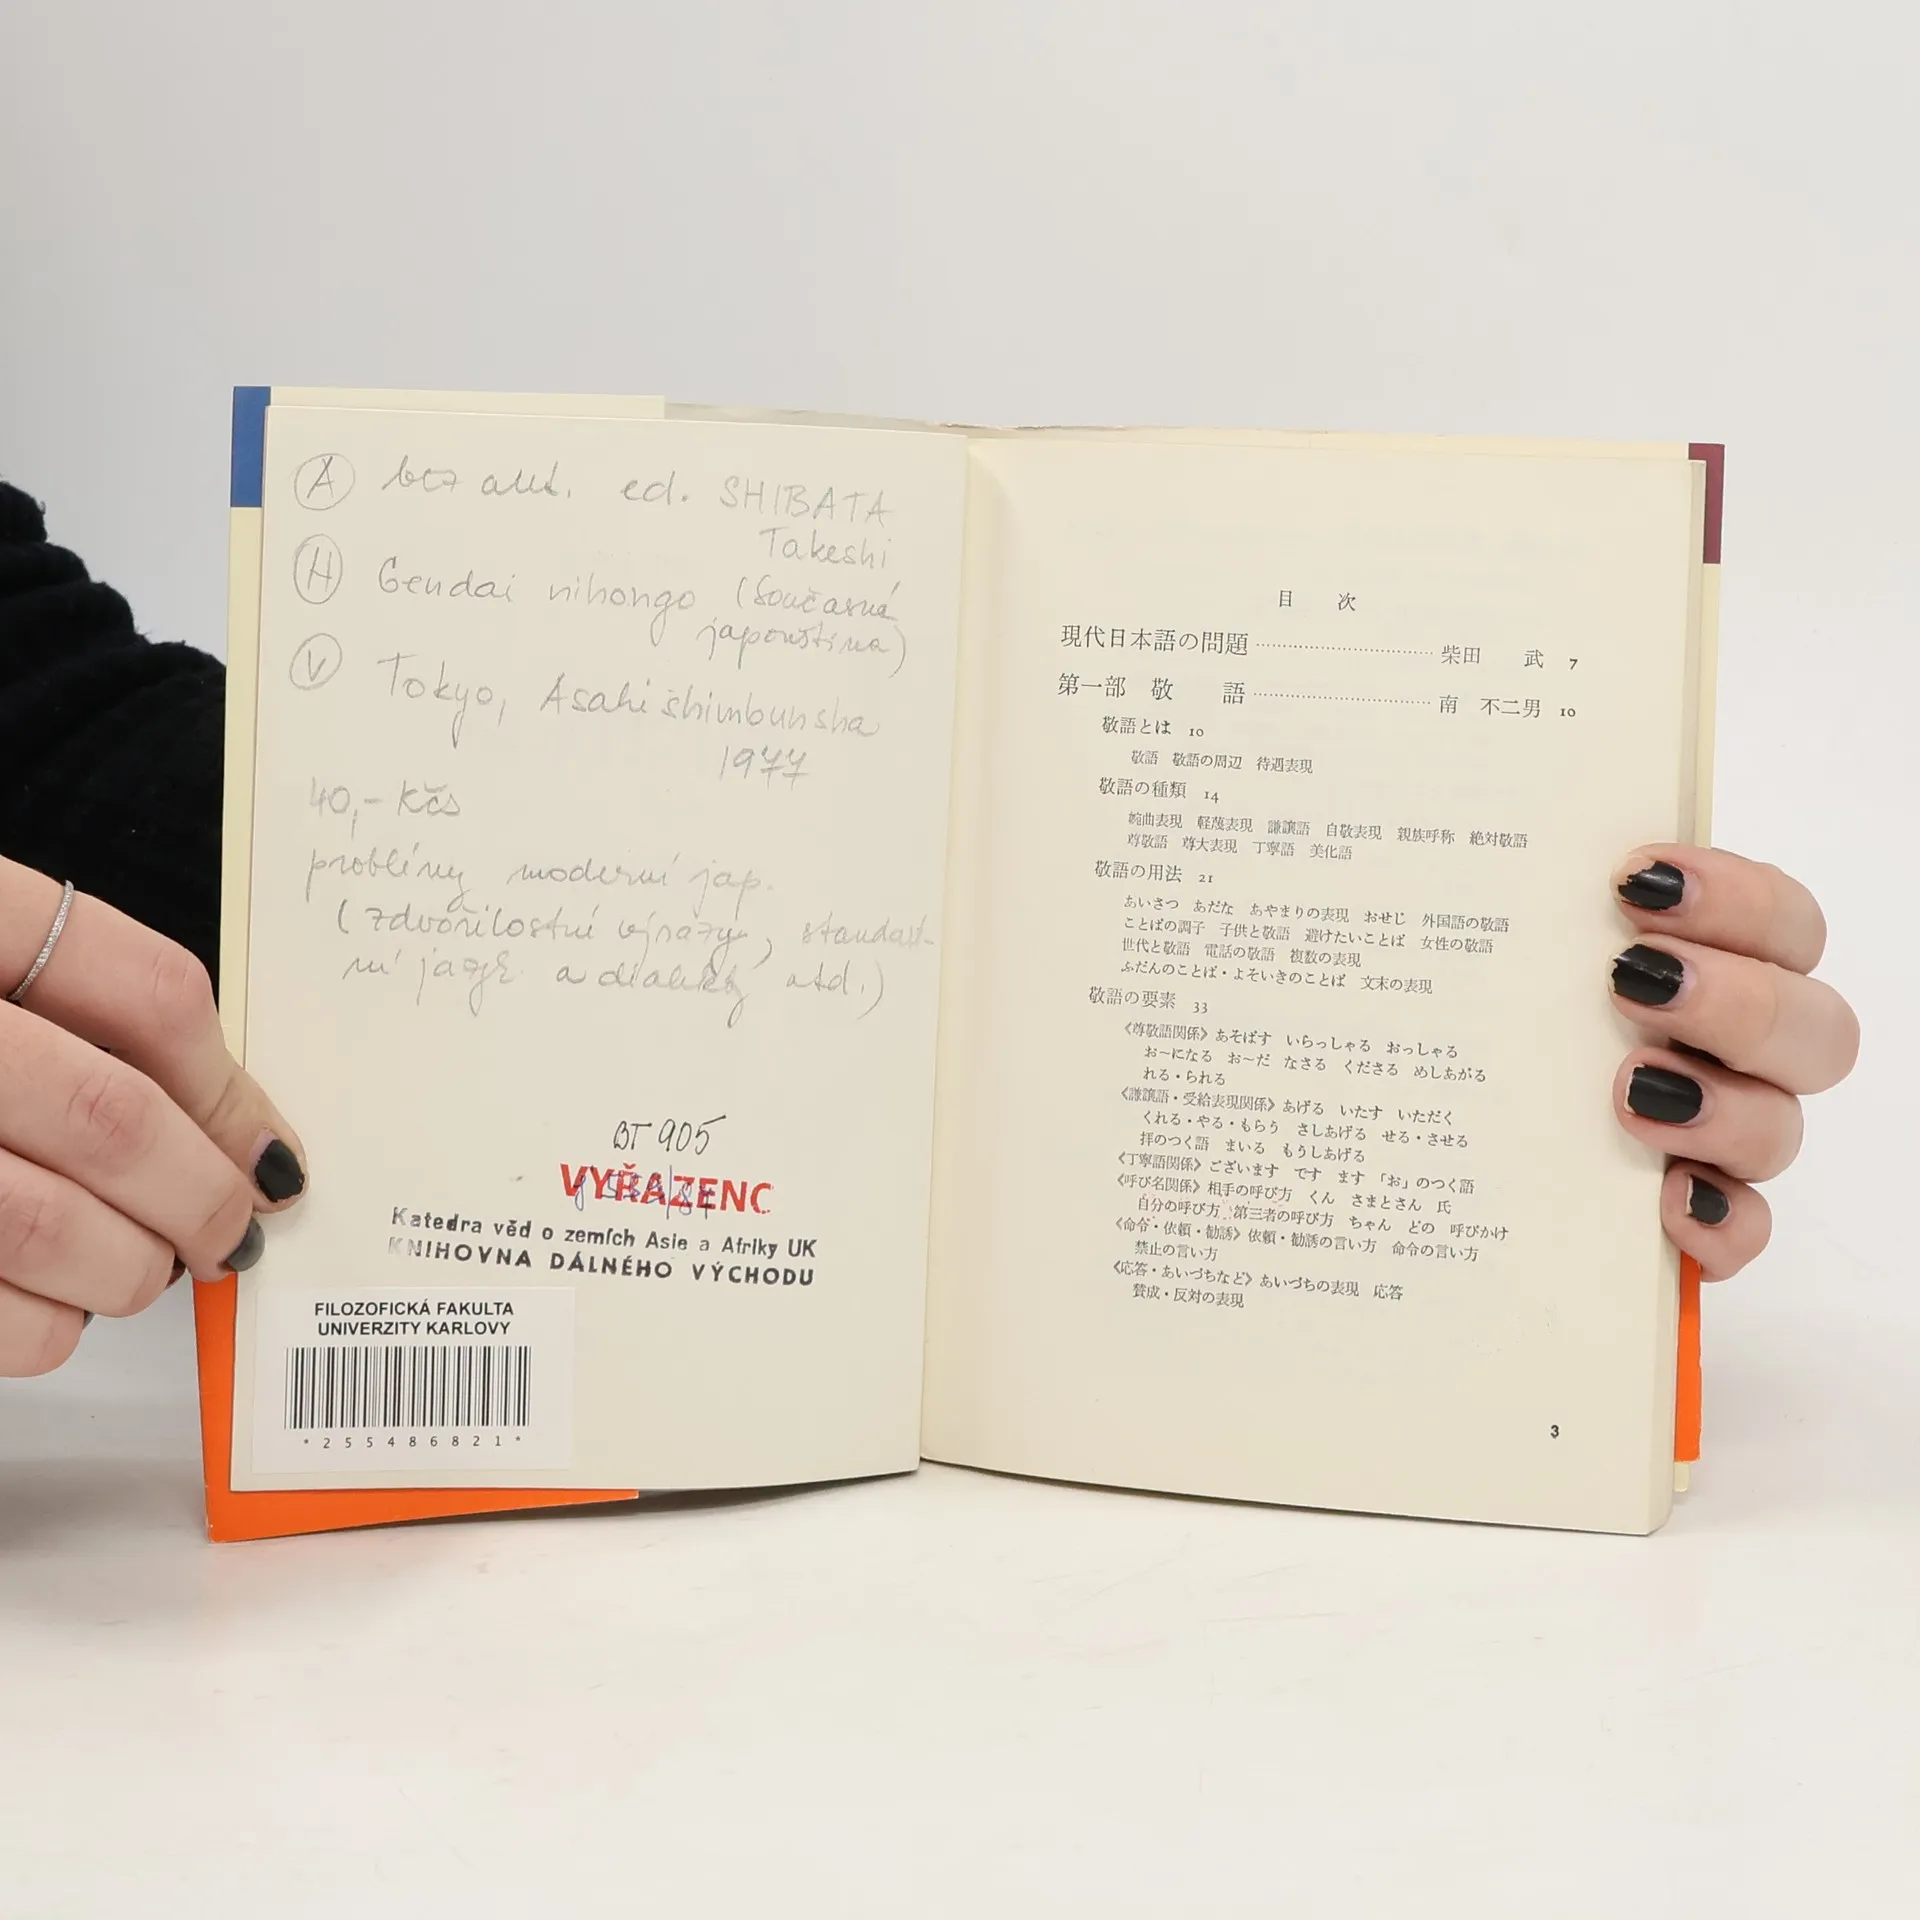 A bez aut. ed. SHIBATA
Takeshi
H Gendai nihongo (současná
japonština)
V Tokyo, Asahi shimbunsha
1977
40,- Kčs
problémy moderní jap.
(zdvořilostní výrazy, standard-
ní jazyk a dialekty atd.)
BT 905
VYŘAZENO
Katedra věd o zemích Asie a Afriky UK
KNIHOVNA DÁLNÉHO VÝCHODU
FILOZOFICKÁ FAKULTA
UNIVERZITY KARLOVY
*255486821*
目 次
現代日本語の問題 柴田 武 7
第一部 敬 語 南 不二男 10
敬語とは 10
敬語 敬語の周辺 待遇表現
敬語の種類 14
婉曲表現 軽蔑表現 謙譲語 自敬表現 親族呼称 絶対敬語
尊敬語 尊大表現 丁寧語 美化語
敬語の用法 21
あいさつ あだな あやまりの表現 おせじ 外国語の敬語
ことばの調子 子供と敬語 避けたいことば 女性の敬語
世代と敬語 電話の敬語 複数の表現
ふだんのことば・よそいきのことば 文末の表現
敬語の要素 33
《尊敬語関係》あそばす いらっしゃる おっしゃる
お〜になる お〜だ なさる くださる めしあがる
れる・られる
《謙譲語・受給表現関係》あげる いたす いただく
くれる・やる・もらう さしあげる せる・させる
拝のつく語 まいる もうしあげる
《丁寧語関係》ございます です ます 「お」のつく語
《呼び名関係》相手の呼び方 くん さまとさん 氏
自分の呼び方 第三者の呼び方 ちゃん どの 呼びかけ
《命令・依頼・勧誘》依頼・勧誘の言い方 命令の言い方
禁止の言い方
《応答・あいづちなど》あいづちの表現 応答
賛成・反対の表現
3